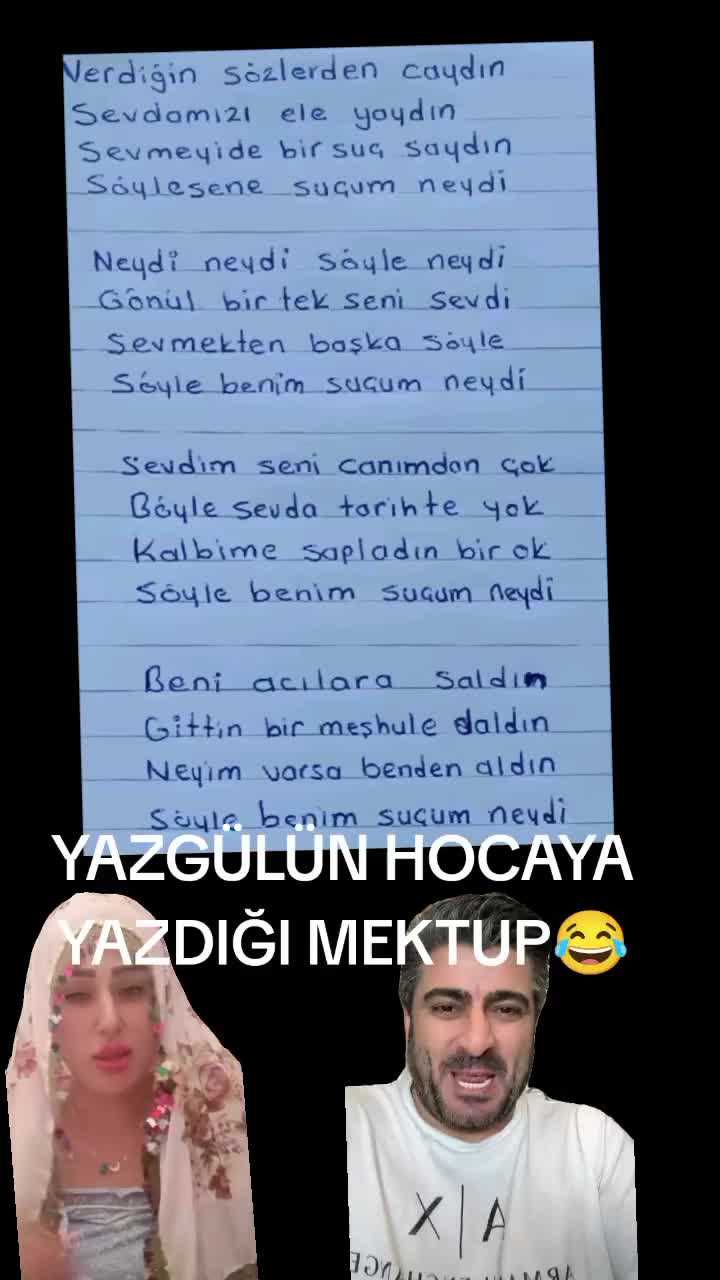 Verdiğin sözlerden caydın
Sevdamızı ele yaydın
Sevmeyide bir suç saydın
Söylesene suçum neydi
Neydi neydi söyle neydi
Gönül bir tek seni sevdi
Sevmekten başka söyle
Söyle benim suçum neydi
Sevdim seni canımdan çok
Böyle sevda tarihte yok
Kalbime sapladın bir ok
Söyle benim suçum neydi
Beni acılara saldın
Gittin bir meşhule daldın
Neyim varsa benden aldın
Söyle benim suçum neydi
YAZGÜLÜN HOCAYA
YAZDIĞI MEKTUP😂
A|X
ARMANI EXCHANGE